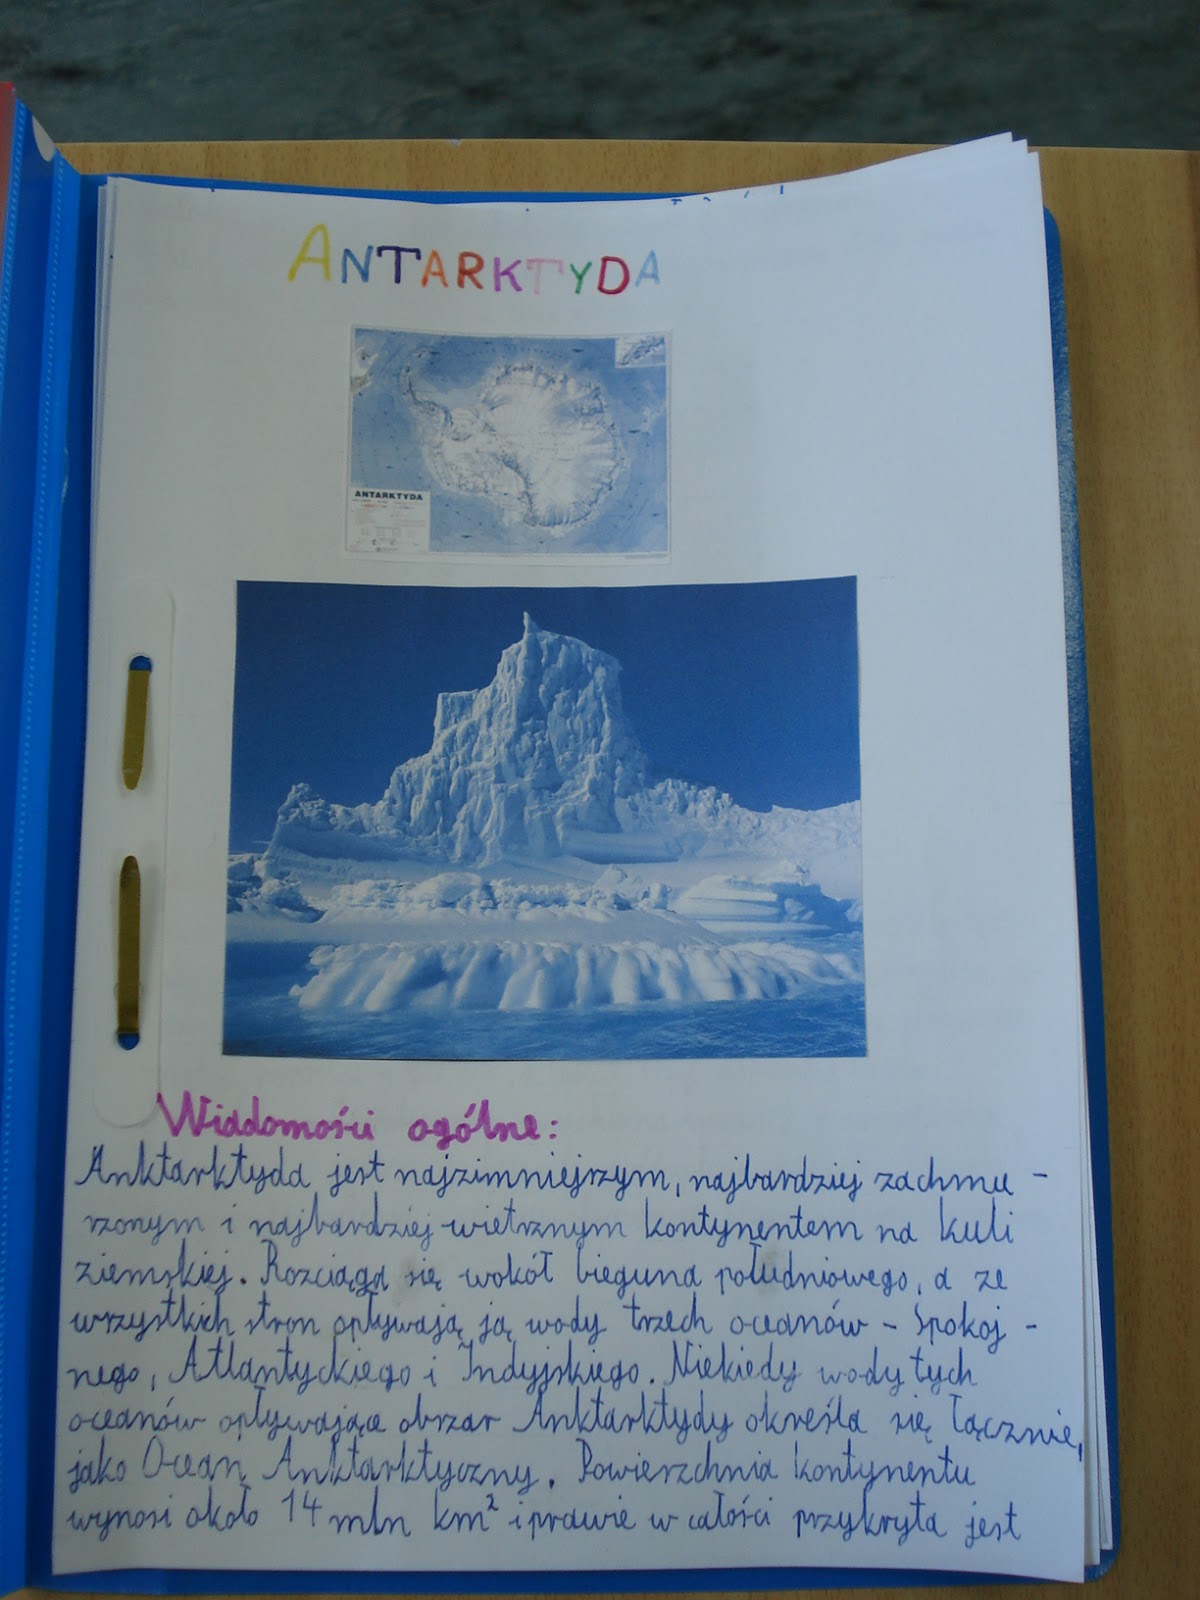 ANTARKTYDA
ANTARKTYDA
Wiadomości ogólne:
Anktarktyda jest najzimniejszym, najbardziej zachmu -
rzonym i najbardziej wietrznym kontynentem na kuli
ziemskiej. Rozciąga się wokół bieguna południowego, a ze
wszystkich stron opływają ją wody trzech oceanów - Spokoj -
nego, Atlantyckiego i Indyjskiego. Niekiedy wody tych
oceanów opływające obszar Anktarktydy określa się łącznie,
jako Ocean Anktarktyczny. Powierzchnia kontynentu
wynosi około 14 mln km² i prawie w całości przykryta jest